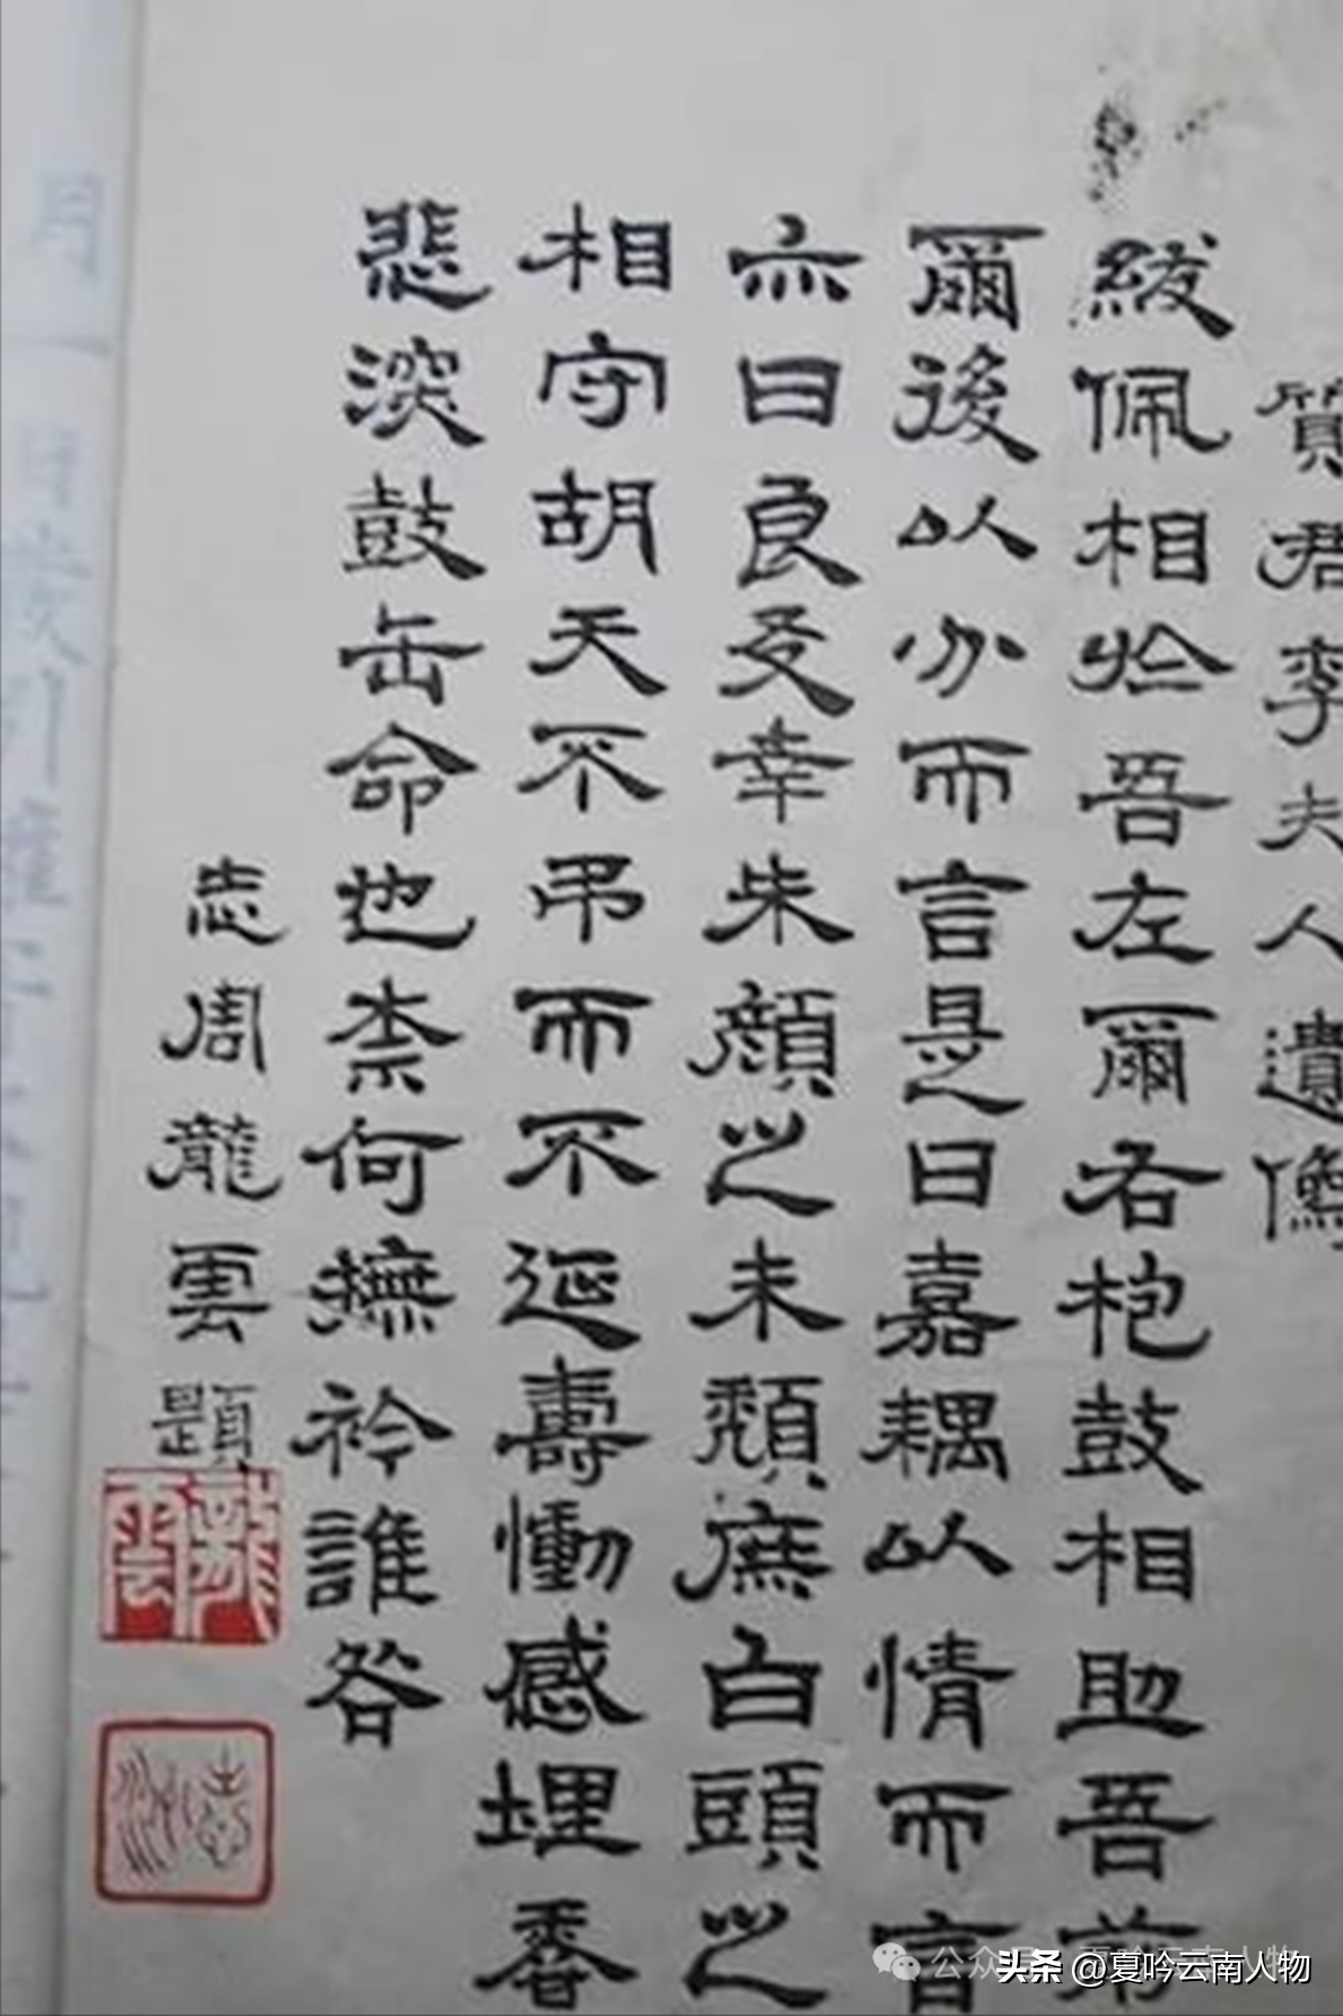 質君李夫人遺像
紱佩相於吾左爾右枹鼓相助吾前
爾後以分而言是曰嘉耦以情而言
亦曰良友幸朱顔之未頹庶白頭之
相守胡天不弔而不延壽慟感埋香
悲深鼓缶命也柰何撫衿誰咎
志周龍雲題
龍雲
頭条 @夏吟云南人物